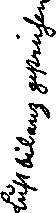 Luftbilanz geprüfen